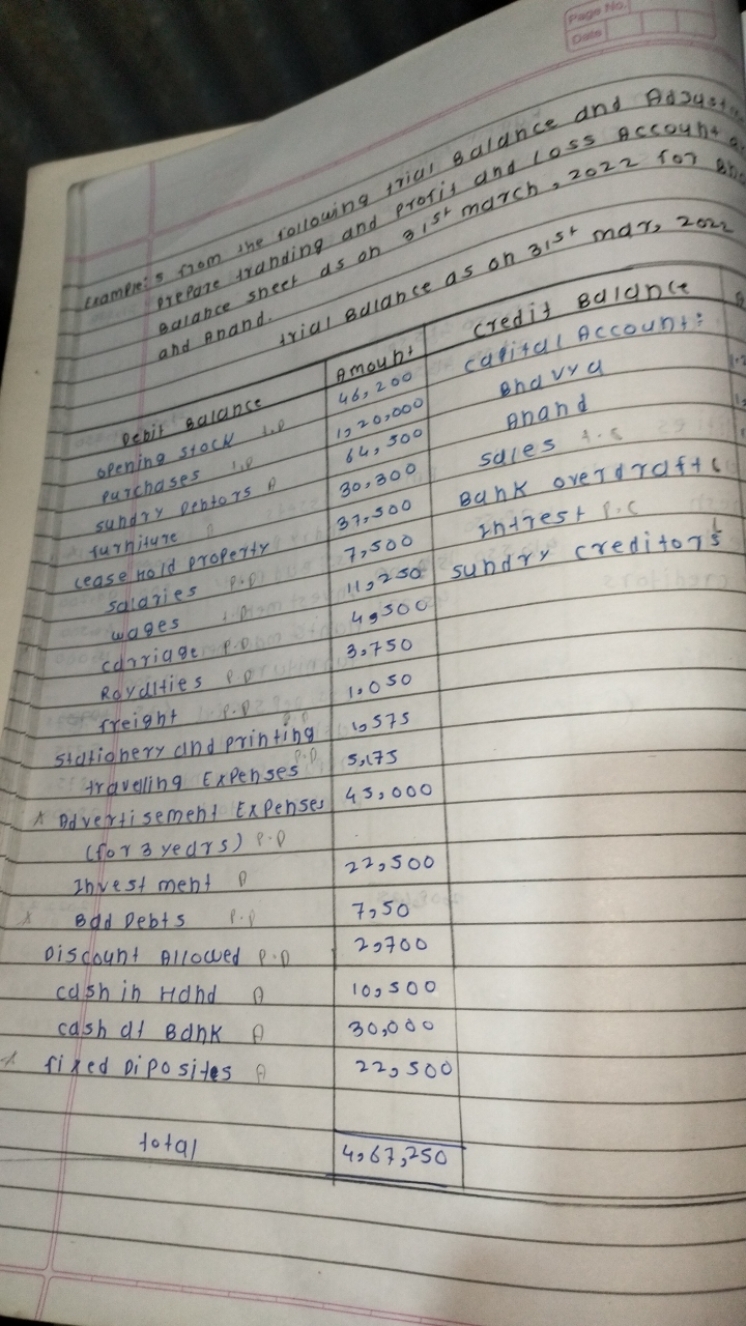 Page No.
Date
Example:5 from the following trial Balance and Adjust
prepare tranding and profit and loss Account
Balance sheet as on 31st march, 2022 for
and Anand.
trial Balance as on 31st mar, 2022
Debit Balance Amount Credit Balance
opening stock 46,200 capital Account:
purchases 1,20,000 Bhavya
sundry Debtors 64,500 Anand
furniture 30,300 sales
Lease hold property 37,500 Bank overdraft
salaries 7,500 Intrest
wages 11,250 sundry creditors
carriage 4,500
Royalties 3,750
freight 1,050
stationery and printing 1,575
travelling Expenses 5,175
Advertisement Expenses 45,000
(for 3 years) P.D
Investment 22,500
Bad Debts 7,50
Discount Allowed P.D 2,700
cash in Hand A 10,500
cash at Bank A 30,000
fixed Diposites A 22,500
total 4,67,250